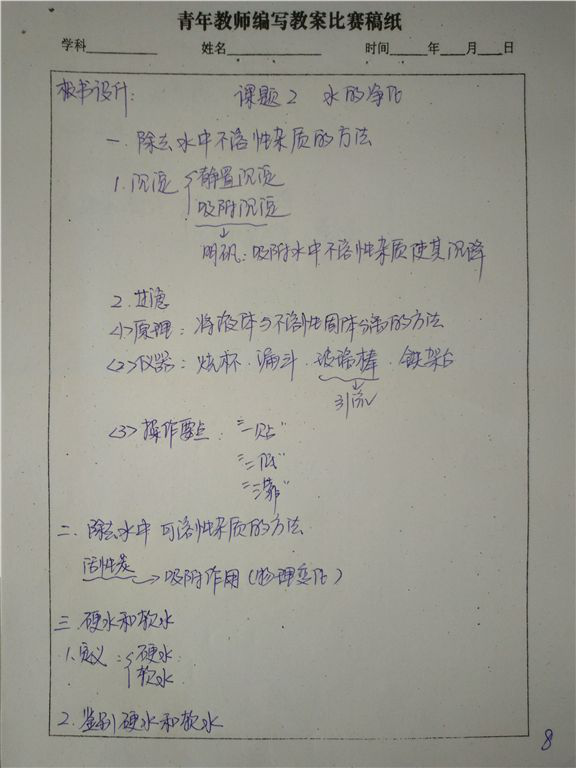 青年教师编写教案比赛稿纸
学科________ 姓名________ 时间____年___月___日
板书设计: 课题2 水的净化
一.除去水中不溶性杂质的方法
1.沉淀 { 静置沉淀
吸附沉淀
↓
明矾:吸附水中不溶性杂质使其沉降
2.过滤
<1>原理:将液体与不溶性固体分离的方法
<2>仪器:烧杯.漏斗.玻璃棒.铁架台
↓
引流
<3>操作要点:"一贴"
"二低"
"三靠"
二.除去水中可溶性杂质的方法
活性炭 → 吸附作用(物理变化)
三.硬水和软水
1.定义:{ 硬水
软水
2.鉴别硬水和软水
8